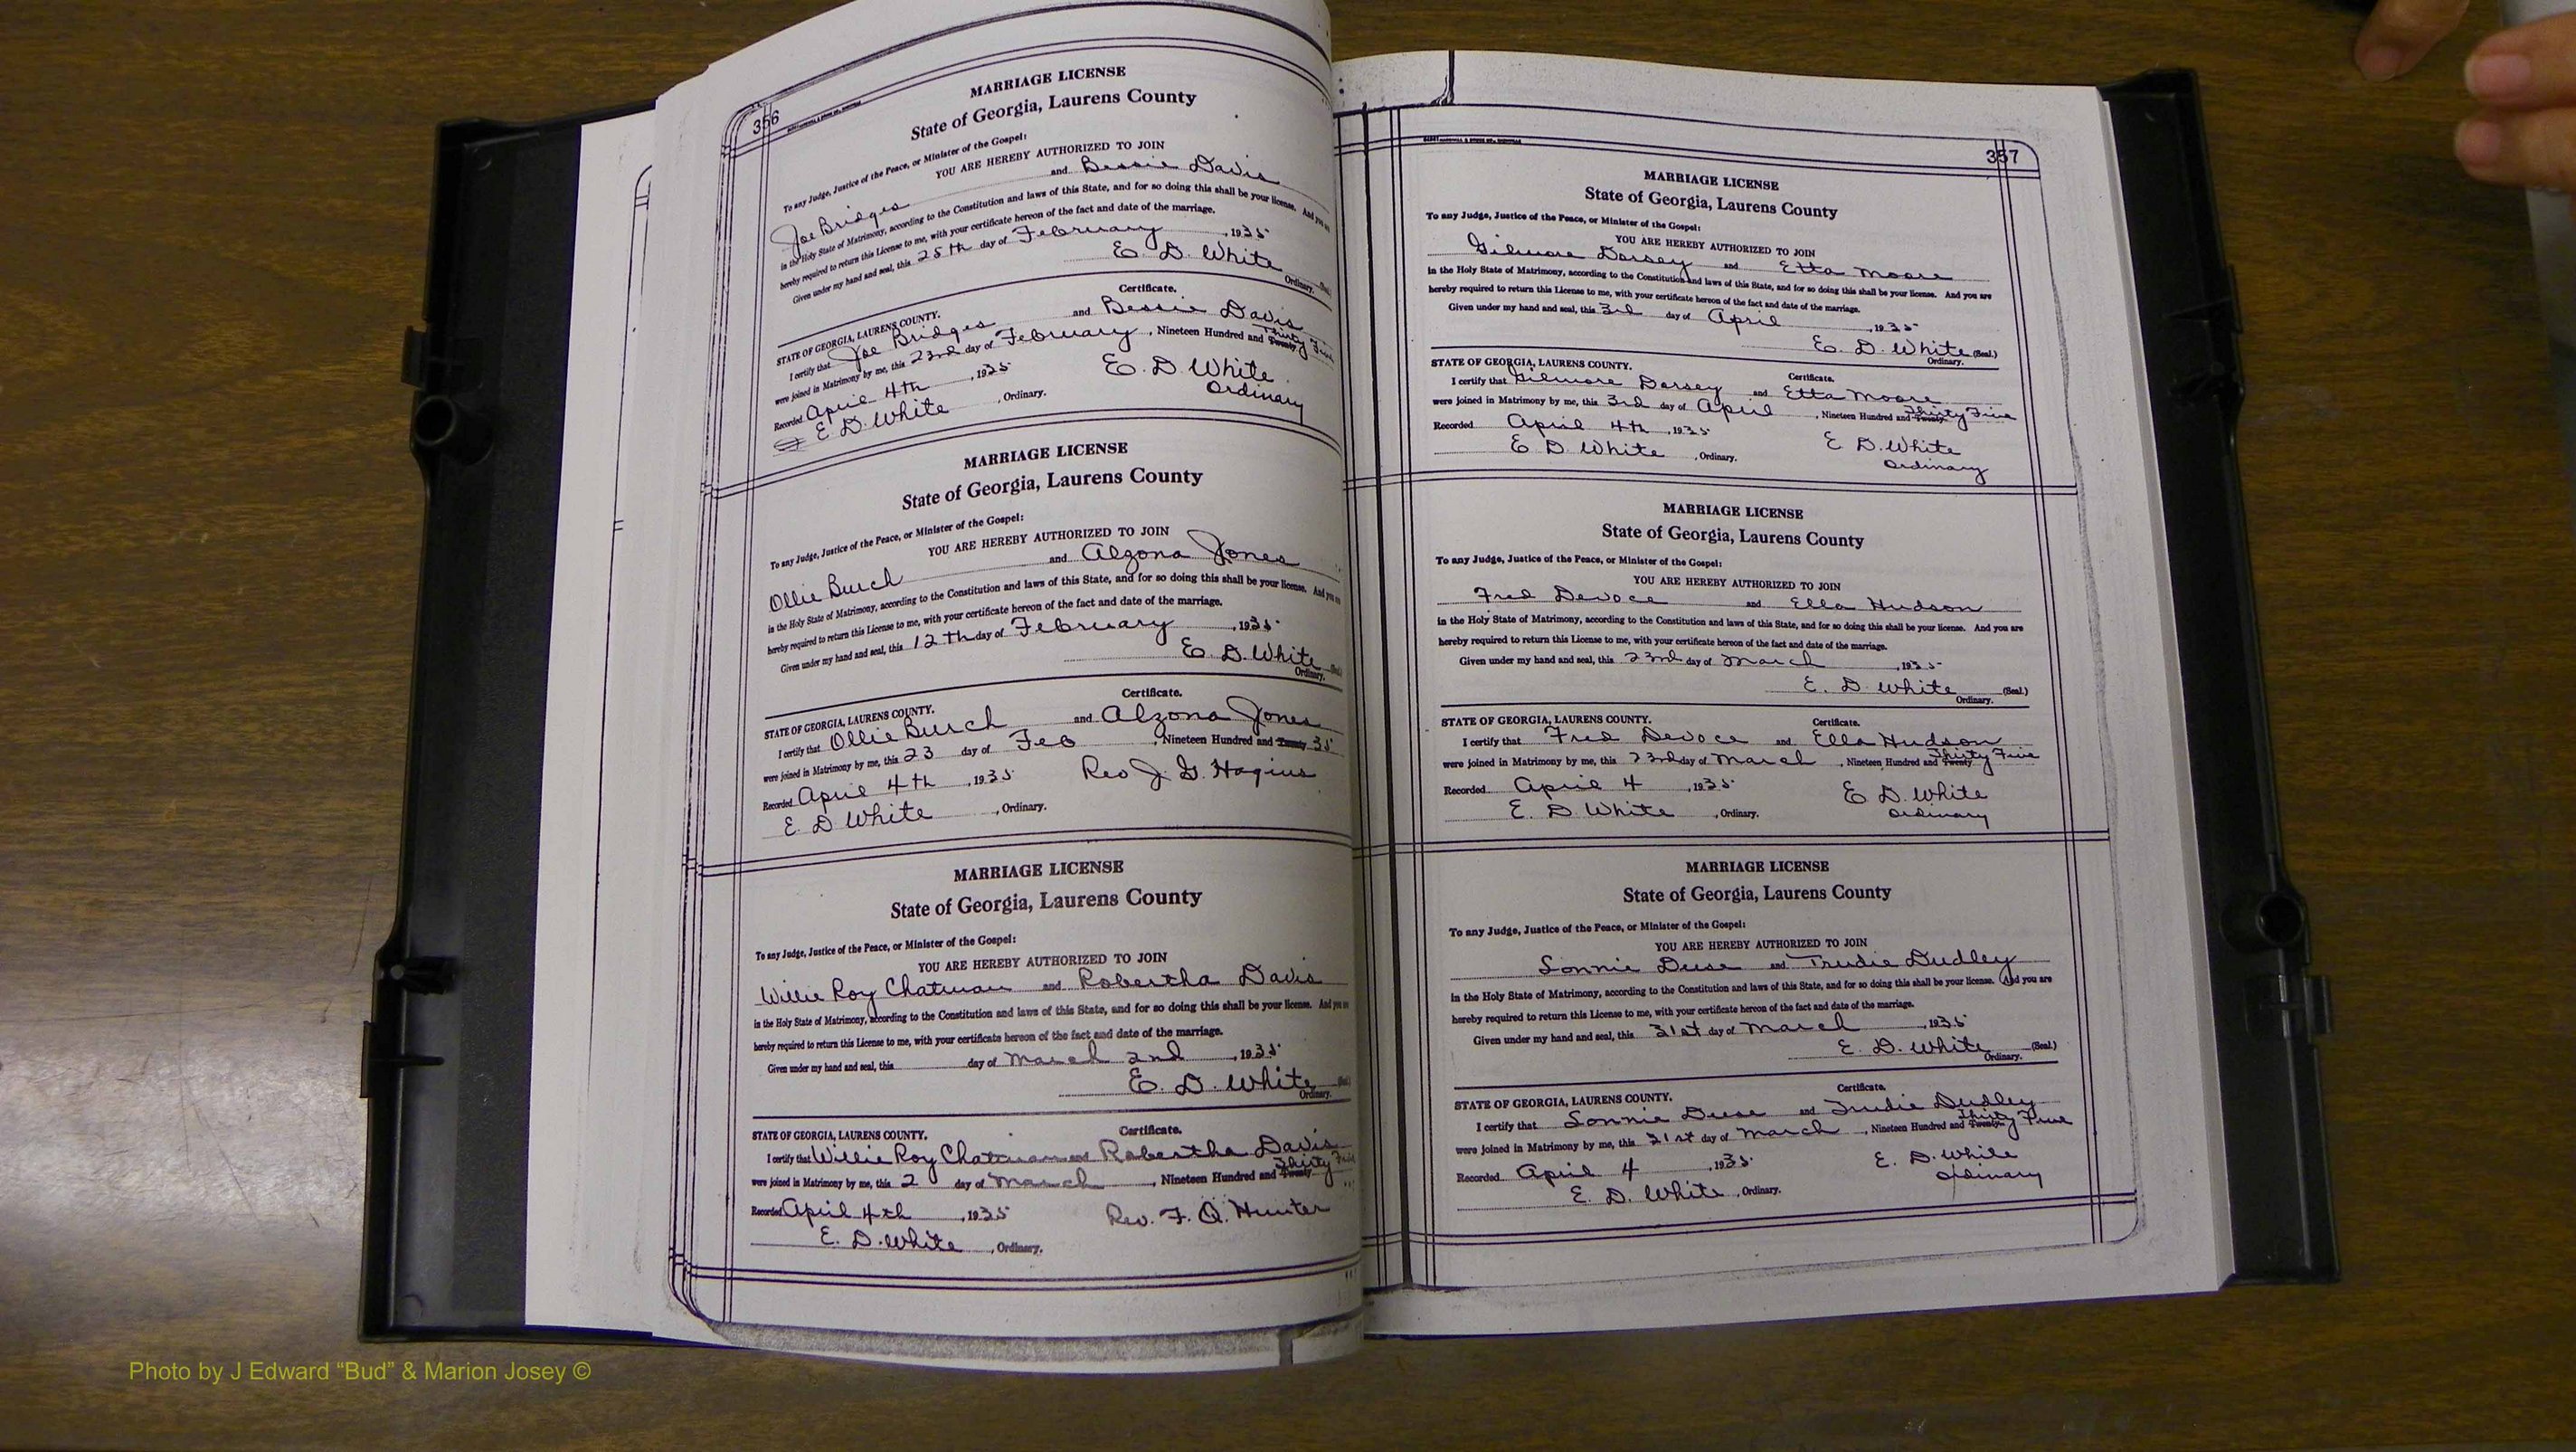 356
MARRIAGE LICENSE
State of Georgia, Laurens County
To any Judge, Justice of the Peace, or Minister of the Gospel:
YOU ARE HEREBY AUTHORIZED TO JOIN
Joe Bridges and Bessie Davis
in the Holy State of Matrimony, according to the Constitution and laws of this State, and for so doing this shall be your license. And you
hereby required to return this License to me, with your certificate hereon of the fact and date of the marriage.
Given under my hand and seal, this 25th day of February, 1935
E. D. White
Ordinary. (Seal.)
Certificate.
STATE OF GEORGIA, LAURENS COUNTY.
I certify that Joe Bridges and Bessie Davis
were joined in Matrimony by me, this 23rd day of February, Nineteen Hundred and Twenty Thirty Five
Recorded April 4th, 1935 E. D. White
E. D. White, Ordinary. Ordinary
MARRIAGE LICENSE
State of Georgia, Laurens County
To any Judge, Justice of the Peace, or Minister of the Gospel:
YOU ARE HEREBY AUTHORIZED TO JOIN
Ollie Burch and Alzona Jones
in the Holy State of Matrimony, according to the Constitution and laws of this State, and for so doing this shall be your license. And you
hereby required to return this License to me, with your certificate hereon of the fact and date of the marriage.
Given under my hand and seal, this 12th day of February, 1935
E. D. White
Ordinary. (Seal.)
Certificate.
STATE OF GEORGIA, LAURENS COUNTY.
I certify that Ollie Burch and Alzona Jones
were joined in Matrimony by me, this 23 day of Feb, Nineteen Hundred and Twenty 35
Recorded April 4th, 1935 Rev J. G.
E. D White, Ordinary.
MARRIAGE LICENSE
State of Georgia, Laurens County
To any Judge, Justice of the Peace, or Minister of the Gospel:
YOU ARE HEREBY AUTHORIZED TO JOIN
Willie Roy Chatman and Robertha Davis
in the Holy State of Matrimony, according to the Constitution and laws of this State, and for so doing this shall be your license. And you
hereby required to return this License to me, with your certificate hereon of the fact and date of the marriage.
Given under my hand and seal, this day of March 2nd, 1935
E. D. White
Ordinary.
Certificate.
STATE OF GEORGIA, LAURENS COUNTY.
I certify that Willie Roy Chatman and Robertha Davis
were joined in Matrimony by me, this 2 day of March, Nineteen Hundred and Twenty Thirty Five
Recorded April 4th, 1935 Rev. F. Q. Hunter
E. D. White, Ordinary.
357
MARRIAGE LICENSE
State of Georgia, Laurens County
To any Judge, Justice of the Peace, or Minister of the Gospel:
YOU ARE HEREBY AUTHORIZED TO JOIN
Gilmore Dorsey and Etta Moore
in the Holy State of Matrimony, according to the Constitution and laws of this State, and for so doing this shall be your license. And you are
hereby required to return this License to me, with your certificate hereon of the fact and date of the marriage.
Given under my hand and seal, this 3rd day of April, 1935
E. D. White (Seal.)
Ordinary.
STATE OF GEORGIA, LAURENS COUNTY. Certificate.
I certify that Gilmore Dorsey and Etta Moore
were joined in Matrimony by me, this 3rd day of April, Nineteen Hundred and Twenty Thirty Five
Recorded April 4th, 1935 E D. White
E D. White, Ordinary. Ordinary
MARRIAGE LICENSE
State of Georgia, Laurens County
To any Judge, Justice of the Peace, or Minister of the Gospel:
YOU ARE HEREBY AUTHORIZED TO JOIN
Fred Devoce and Ella Hudson
in the Holy State of Matrimony, according to the Constitution and laws of this State, and for so doing this shall be your license. And you are
hereby required to return this License to me, with your certificate hereon of the fact and date of the marriage.
Given under my hand and seal, this 23rd day of March, 1935
E. D. White (Seal.)
Ordinary.
STATE OF GEORGIA, LAURENS COUNTY. Certificate.
I certify that Fred Devoce and Ella Hudson
were joined in Matrimony by me, this 23rd day of March, Nineteen Hundred and Twenty Thirty Five
Recorded April 4, 1935 E D. White
E. D White, Ordinary. Ordinary
MARRIAGE LICENSE
State of Georgia, Laurens County
To any Judge, Justice of the Peace, or Minister of the Gospel:
YOU ARE HEREBY AUTHORIZED TO JOIN
Lonnie Duse and Trudie Dudley
in the Holy State of Matrimony, according to the Constitution and laws of this State, and for so doing this shall be your license. And you are
hereby required to return this License to me, with your certificate hereon of the fact and date of the marriage.
Given under my hand and seal, this 31st day of March, 1935
E. D. White (Seal.)
Ordinary.
Certificate.
STATE OF GEORGIA, LAURENS COUNTY.
I certify that Lonnie Duse and Trudie Dudley
were joined in Matrimony by me, this 31st day of March, Nineteen Hundred and Twenty Thirty Five
Recorded April 4, 1935 E. D. White
E. D. White, Ordinary. Ordinary
Photo by J Edward “Bud” & Marion Josey ©